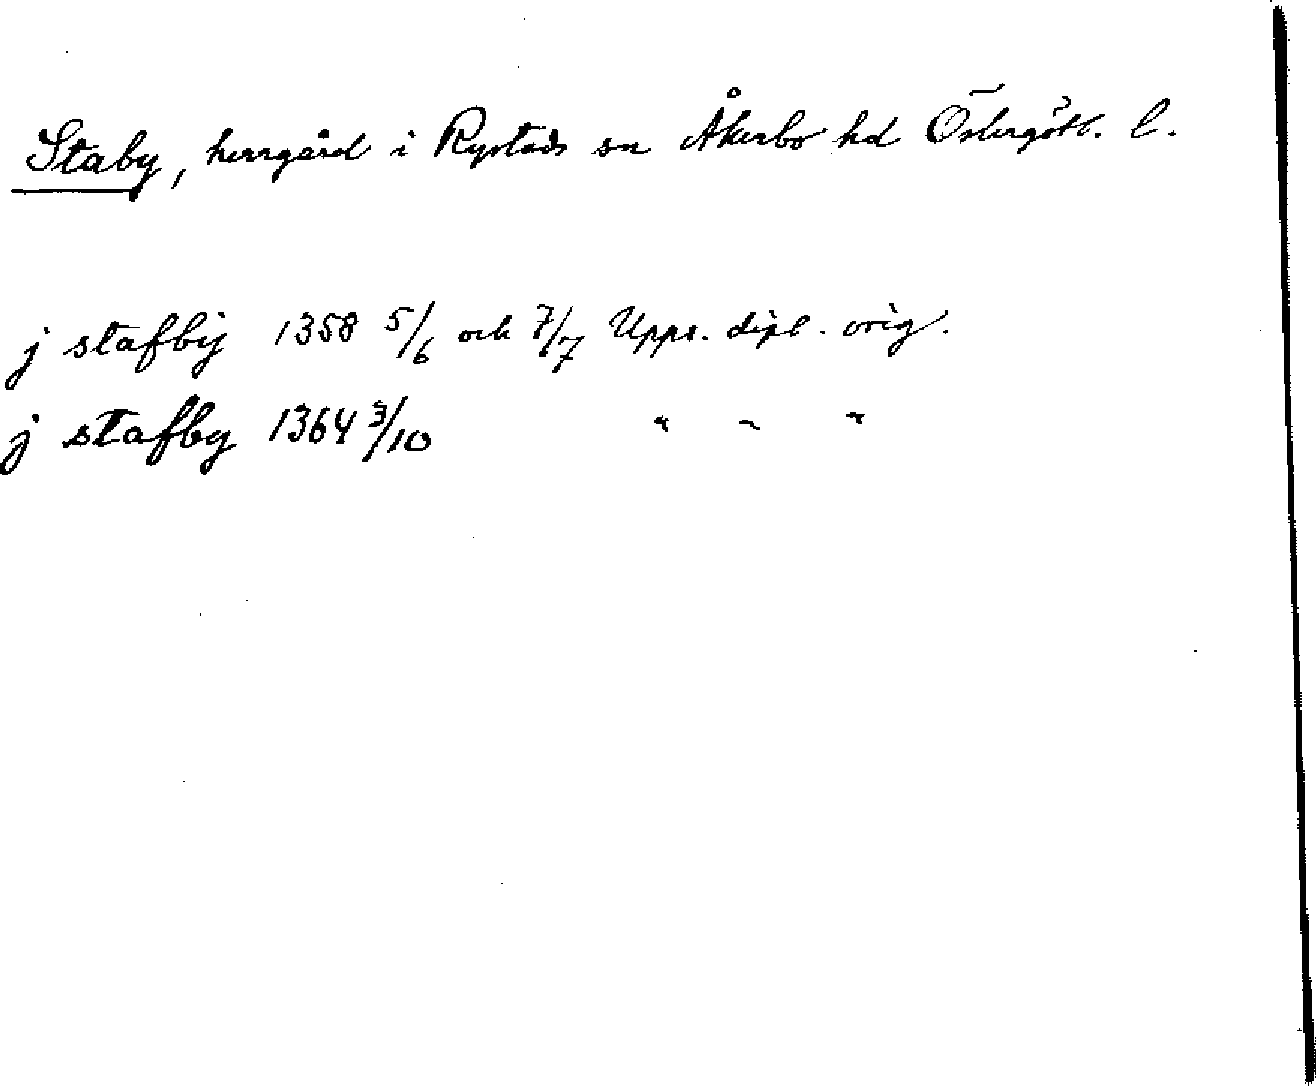 Staby, herrgård i Rystads sn Åkerbo hd Östergötl. l.
j stafbÿ 1358 5/6 och 7/7 Upps. dipl. orig.
j stafby 1364 3/10 " – "